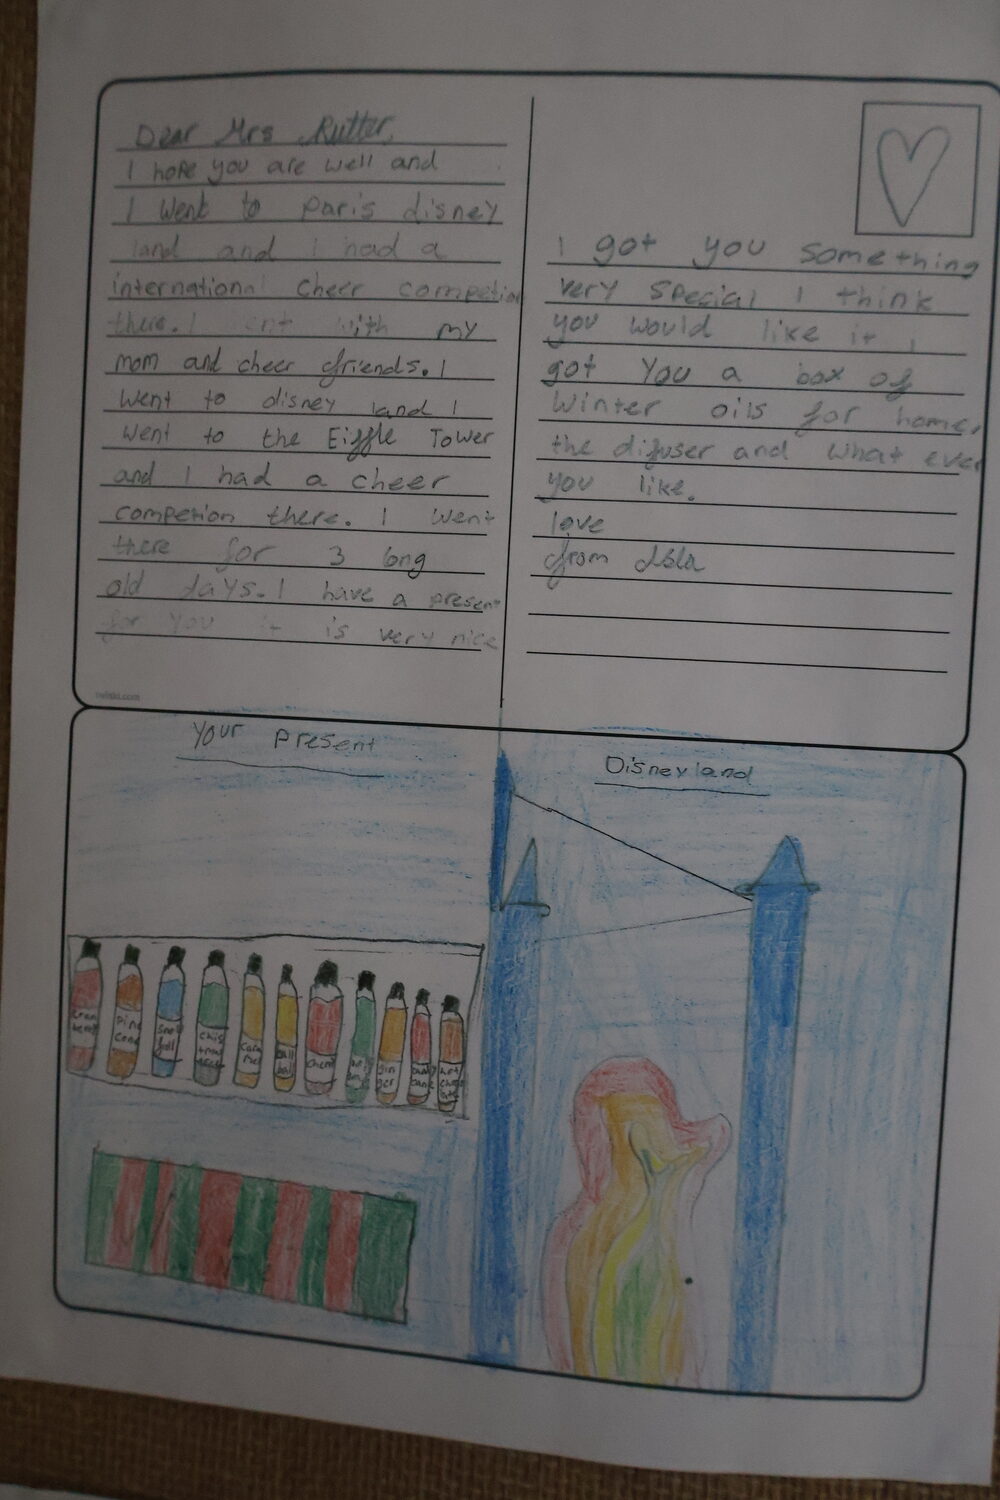 Dear Mrs Rutter,
I hope you are well and
I went to Paris disney
land and I had a
international cheer competion
there. I went with my
mom and cheer friends. I
went to disney land I
went to the Eiffle Tower
and I had a cheer
competion there. I went
there for 3 long
old days. I have a present
for you it is very nice
twinkl.com
I got you something
very special I think
you would like it I
got you a box of
winter oils for home,
the difuser and what ever
you like.
love
from Isla
Your Present
Disneyland
Cran
berry
Pine
Cone
Snow
fall
Chis
tmas
tree
Cara
mel
Cherry
gin
ger
cane
hot
choco
late